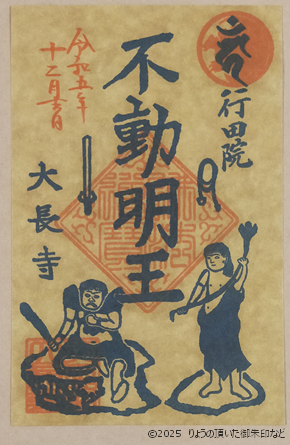 行田院
不動明王
令和五年
十二月吉日
大長寺
©2025 りょうの頂いた御朱印など